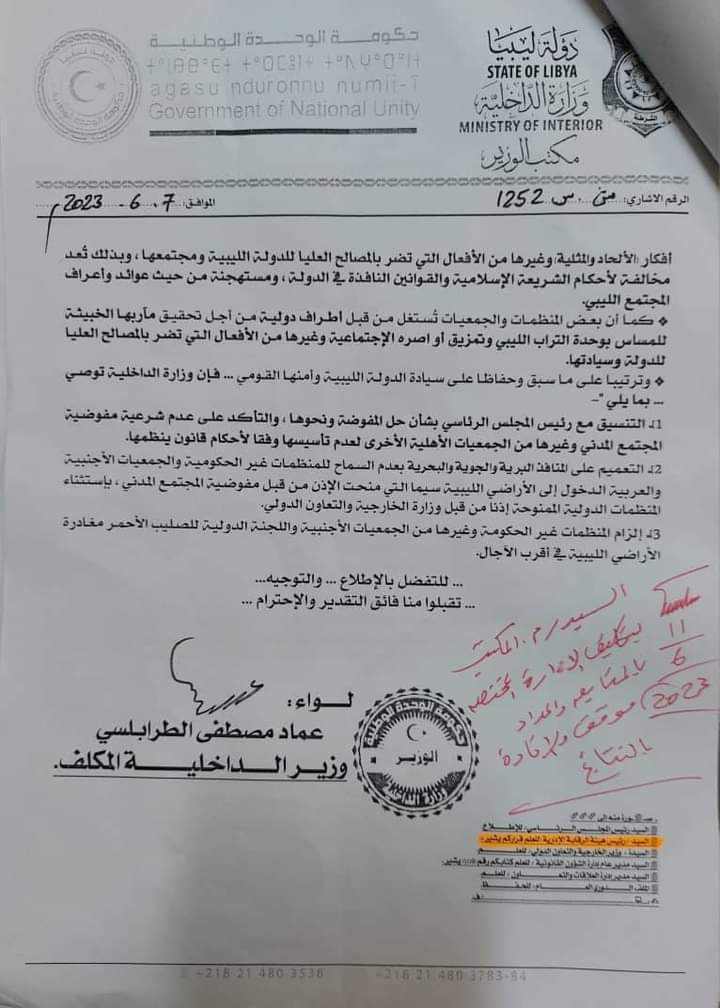 حكومة الوحدة الوطنية
agasu nduronnu numit-ī
Government of National Unity
دولة ليبيا
STATE OF LIBYA
وزارة الداخلية
MINISTRY OF INTERIOR
مكتب الوزير
الشرطة
الرقم الاشاري: 1252
الموافق: 7 - 6 - 2023
أفكار (الألحاد والمثلية) وغيرها من الأفعال التي تضر بالمصالح العليا للدولة الليبية ومجتمعها ، وبذلك تُعد
مخالفة لأحكام الشريعة الإسلامية والقوانين النافذة في الدولة ، ومستهجنة من حيث عوائد وأعراف
المجتمع الليبي.
❖ كما أن بعض المنظمات والجمعيات تُستغل من قبل أطراف دولية من أجل تحقيق مآربها الخبيثة
للمساس بوحدة التراب الليبي وتمزيق أو اصره الإجتماعية وغيرها من الأفعال التي تضر بالمصالح العليا
للدولة وسيادتها.
❖ وترتيبا على ما سبق وحفاظا على سيادة الدولة الليبية وأمنها القومي ... فإن وزارة الداخلية توصي
... بما يلي "-
1ـ التنسيق مع رئيس المجلس الرئاسي بشأن حل المفوضة ونحوها ، والتأكد على عدم شرعية مفوضية
المجتمع المدني وغيرها من الجمعيات الأهلية الأخرى لعدم تأسيسها وفقا لأحكام قانون ينظمها.
2ـ التعميم على المنافذ البرية والجوية والبحرية بعدم السماح للمنظمات غير الحكومية والجمعيات الأجنبية
والعربية الدخول إلى الأراضي الليبية سيما التي منحت الإذن من قبل مفوضية المجتمع المدني ، بإستثناء
المنظمات الدولية الممنوحة إذنا من قبل وزارة الخارجية والتعاون الدولي.
3ـ إلزام المنظمات غير الحكومة وغيرها من الجمعيات الأجنبية واللجنة الدولية للصليب الأحمر مغادرة
الأراضي الليبية في أقرب الآجال.
... للتفضل بالإطلاع ... والتوجيه...
... تقبلوا منا فائق التقدير والإحترام ...
السيد م. المكتب
بتكليف الادارة المختصة
بالمتابعه واعداد
موقف والافادة
بالنتائج
11
6
2023
لواء:
عماد مصطفى الطرابلسي
وزير الداخلية المكلف.
حكومة الوحدة الوطنية
الوزير
وزارة الداخلية
صورة منه إلى
السيد رئيس المجلس الرئاسي للإطلاع
السيد / رئيس هيئة الرقابة الإدارية للعلم قراركم يشير
السيدة / وزير الخارجية والتعاون الدولي / للعلم
السيد مدير عام إدارة الشؤون القانونية / للعلم كتابكم رقم يشير.
السيد مدير إدارة العلاقات والتعاون / للعلم
الملف الدوري العام / للحفظ
+218 21 480 3538
+218 21 480 3783-84